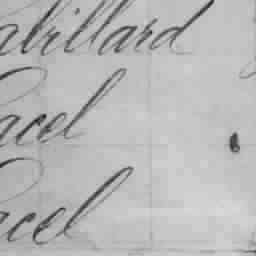 abillard
acel
acel